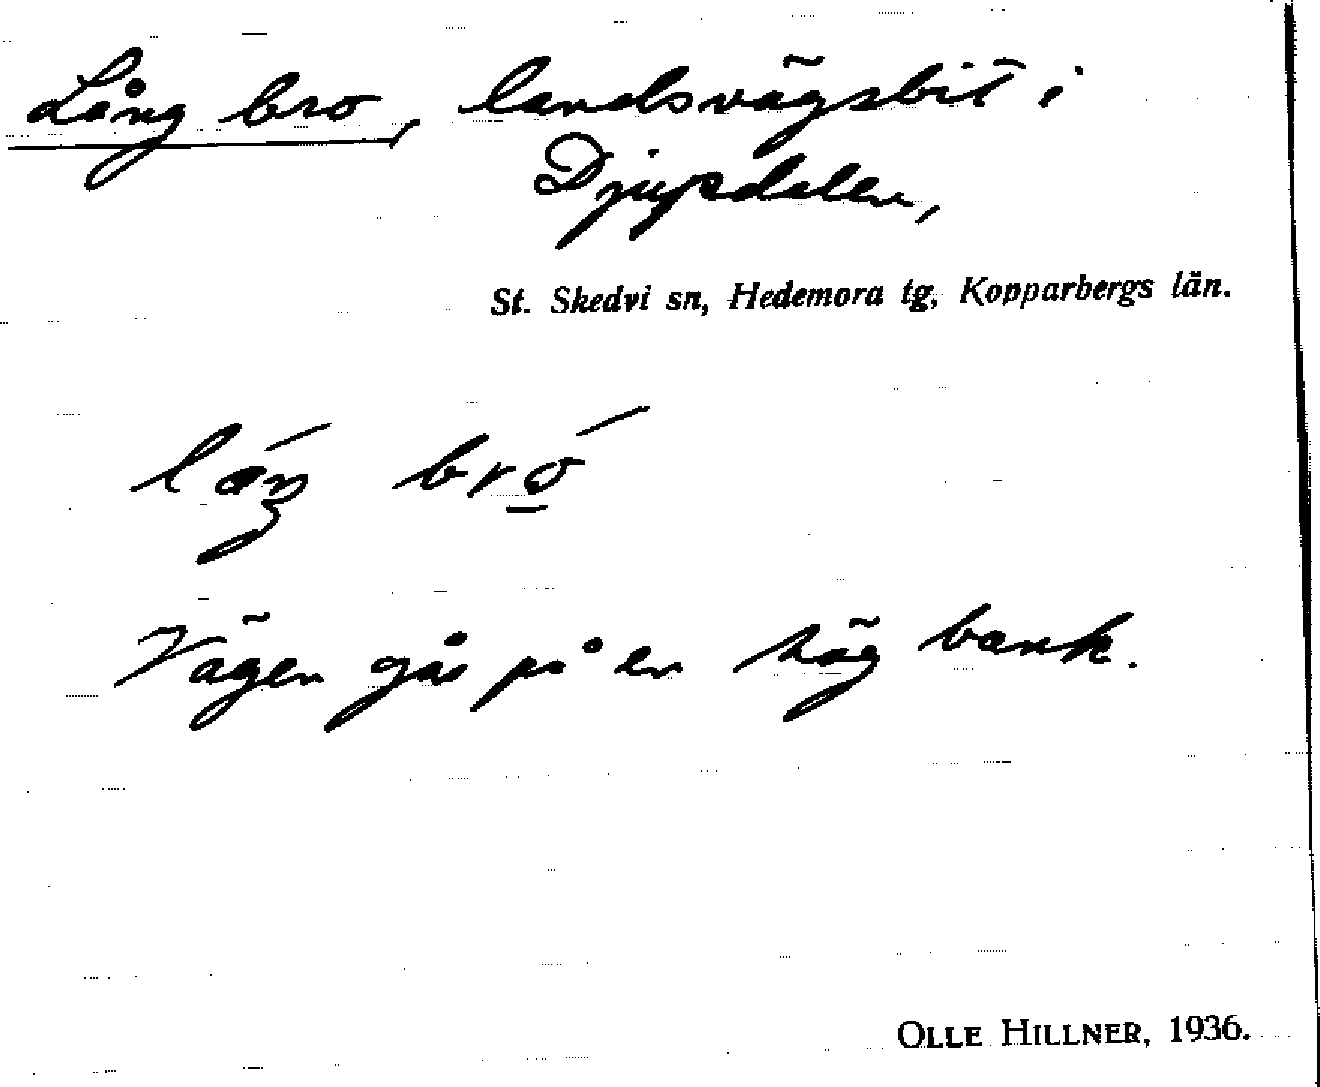 Lång bro, landsvägsbit i
Djupdalen,
St. Skedvi sn, Hedemora tg, Kopparbergs län.
bró̲
Vägen går på en hög bank.
OLLE HILLNER, 1936.